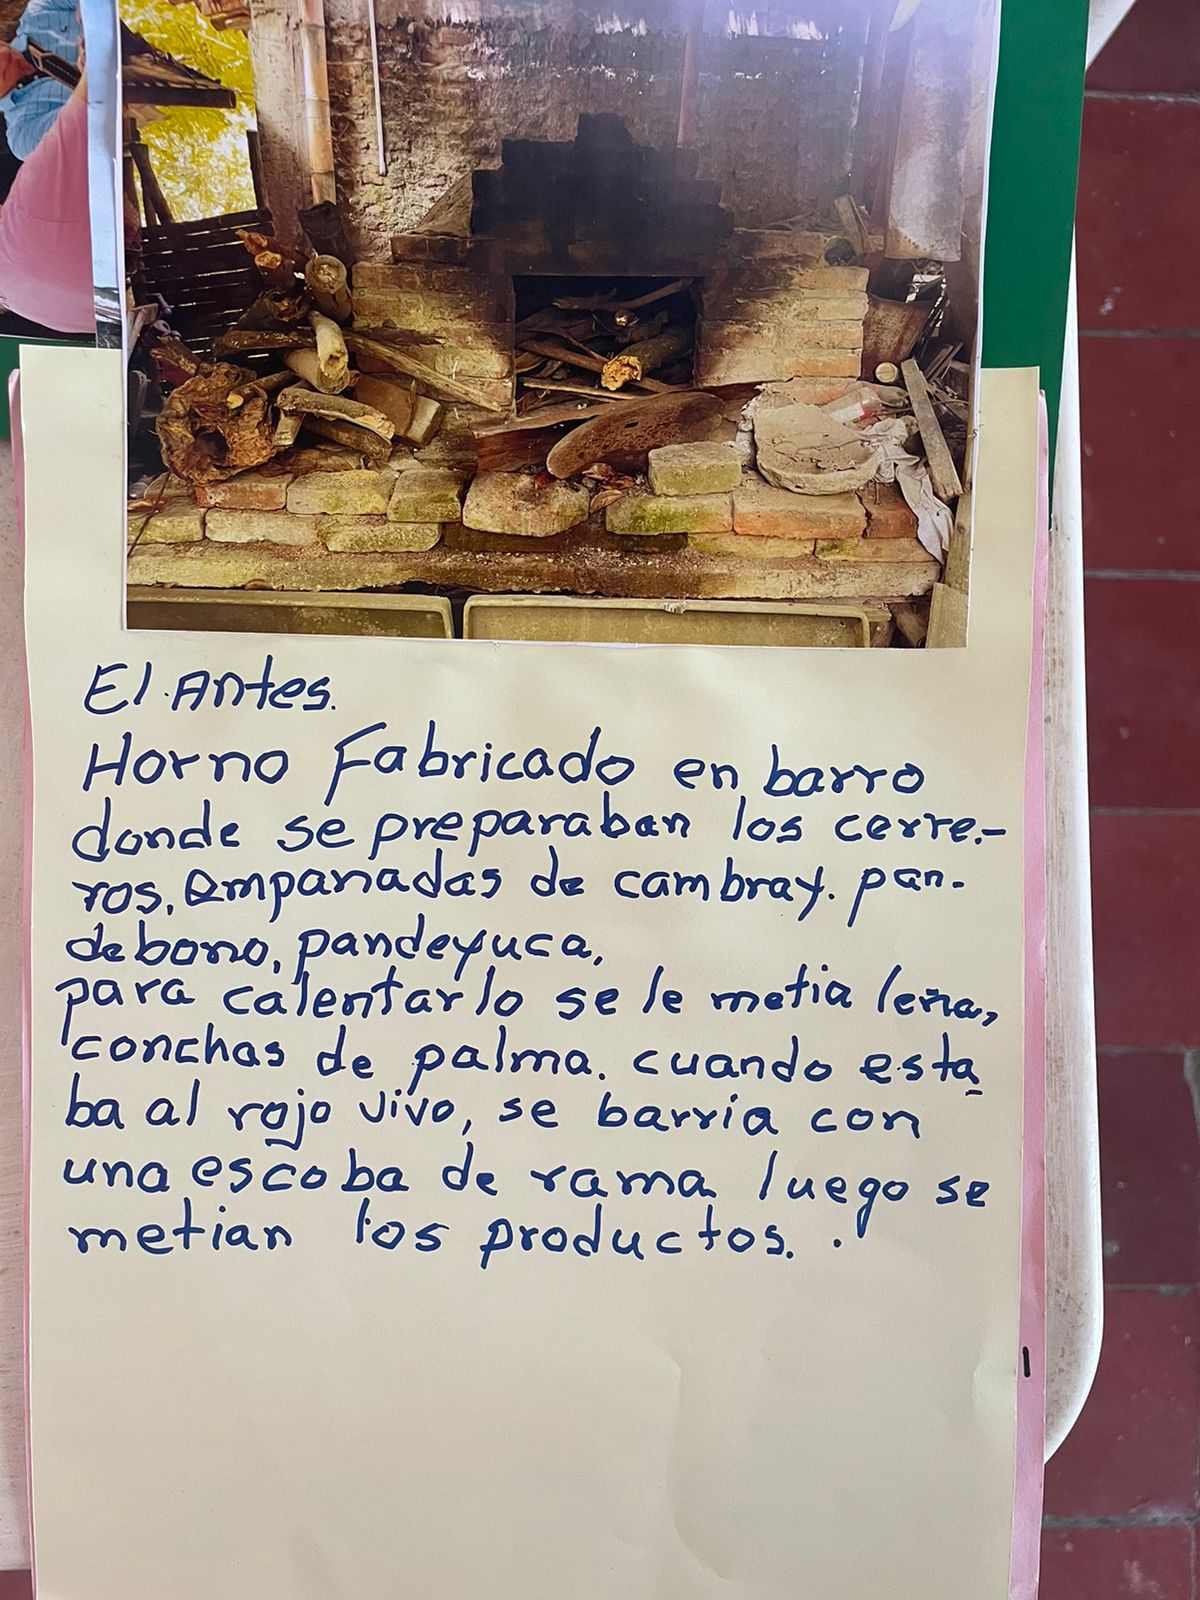 El Antes.
Horno Fabricado en barro
donde se preparaban los cerre-
ros, empanadas de cambray. pan-
debono, pandeyuca,
para calentarlo se le metia leña,
conchas de palma. cuando esta
ba al rojo vivo, se barría con
una escoba de rama luego se
metian los productos.